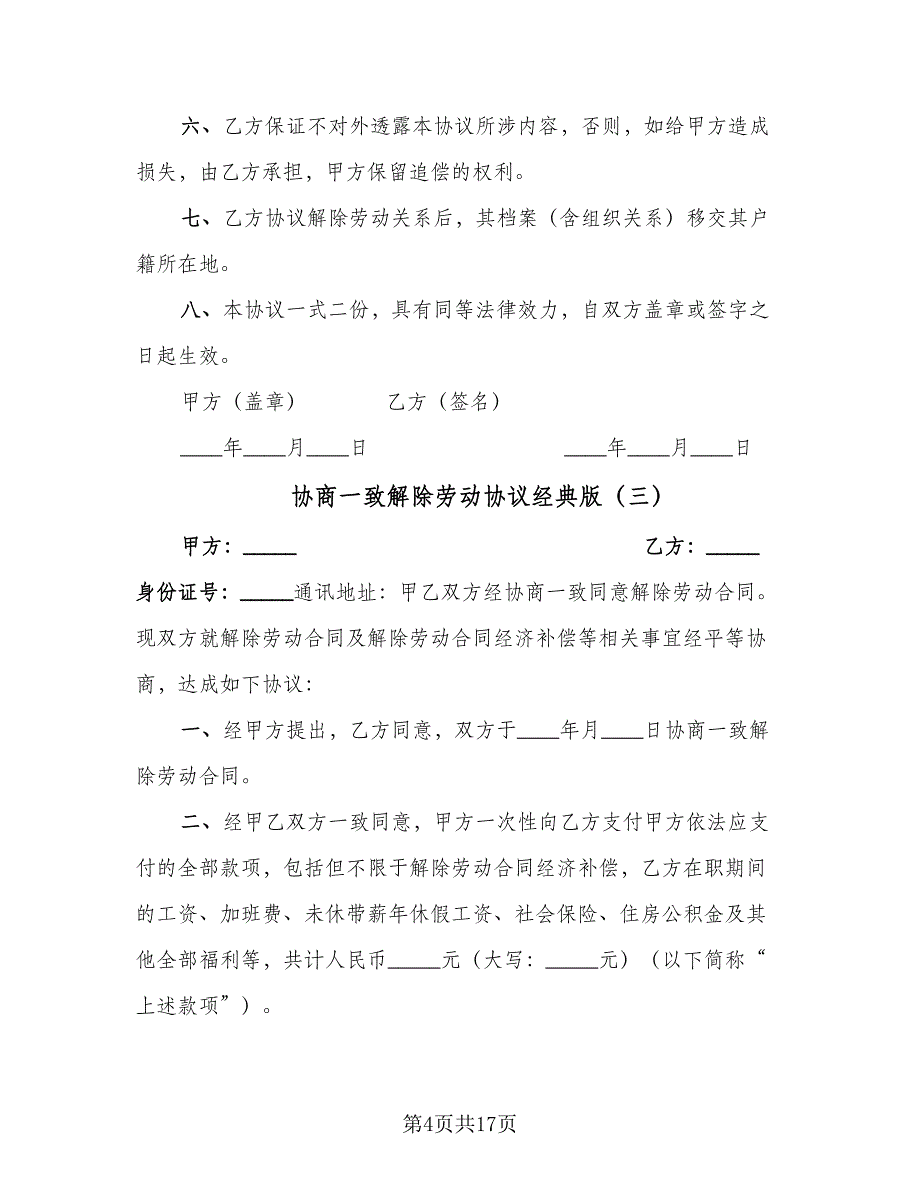 六、乙方保证不对外透露本协议所涉内容，否则，如给甲方造成
损失，由乙方承担，甲方保留追偿的权利。
七、乙方协议解除劳动关系后，其档案（含组织关系）移交其户
籍所在地。
八、本协议一式二份，具有同等法律效力，自双方盖章或签字之
日起生效。
甲方（盖章） 乙方（签名）
____年____月____日 ____年____月____日
协商一致解除劳动协议经典版（三）
甲方：_____ 乙方：_____
身份证号：_____通讯地址：甲乙双方经协商一致同意解除劳动合同。
现双方就解除劳动合同及解除劳动合同经济补偿等相关事宜经平等协
商，达成如下协议：
一、经甲方提出，乙方同意，双方于____年月____日协商一致解
除劳动合同。
二、经甲乙双方一致同意，甲方一次性向乙方支付甲方依法应支
付的全部款项，包括但不限于解除劳动合同经济补偿，乙方在职期间
的工资、加班费、未休带薪年休假工资、社会保险、住房公积金及其
他全部福利等，共计人民币_____元（大写：_____元）（以下简称“
上述款项”）。
第4页共17页